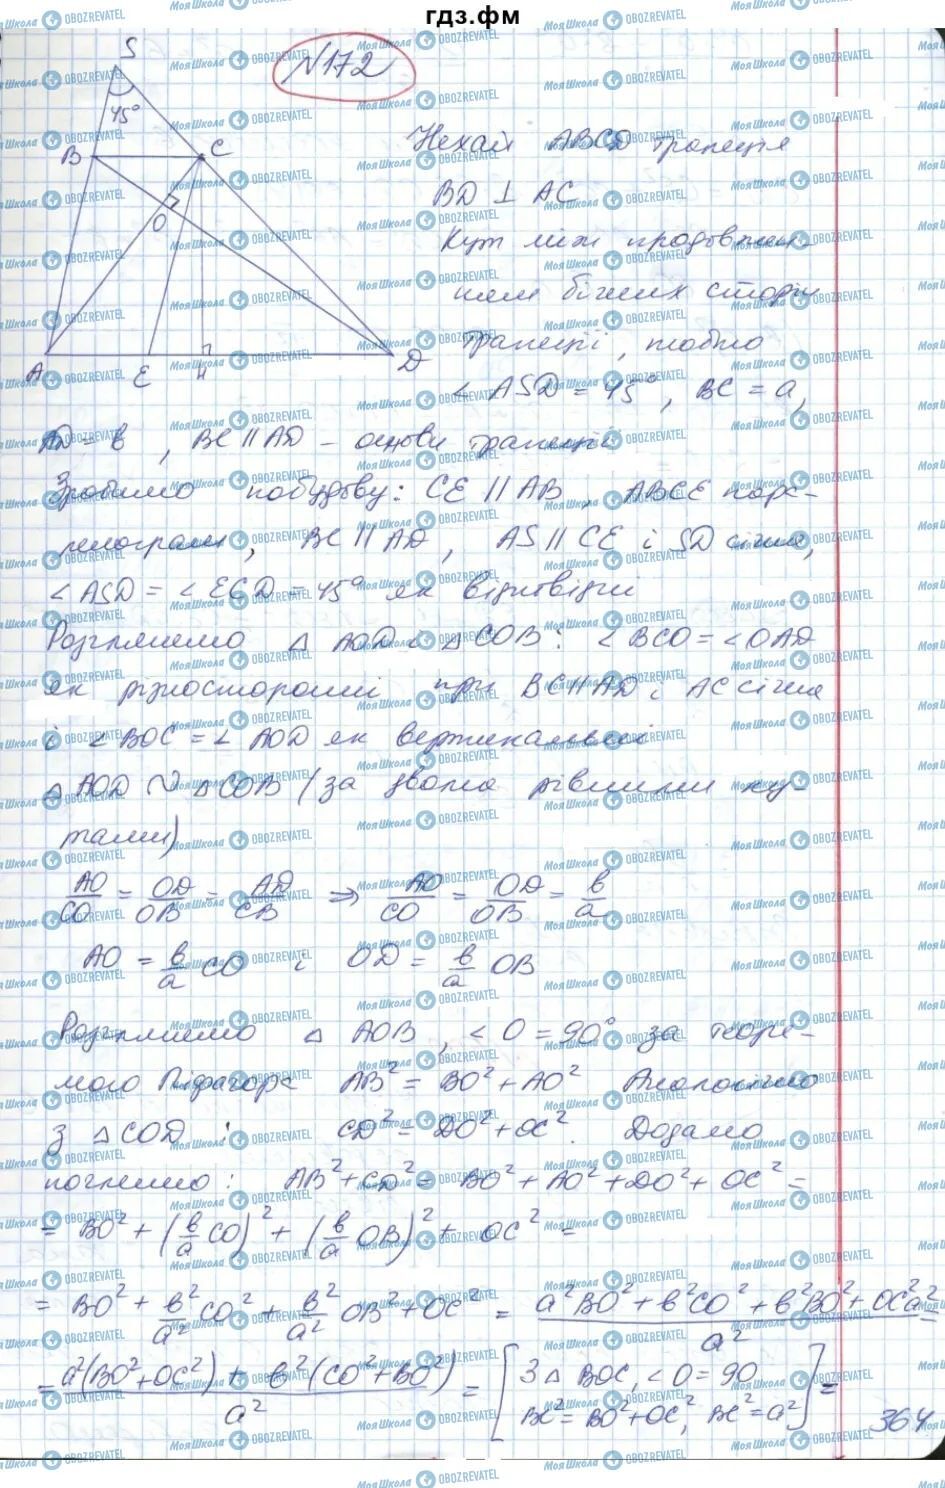 гдз.фм
N172
S
45°
B
C
O
A
E
H
D
Нехай ABCD трапеція
BD ⊥ AC
Кут між продовжен-
ням бічних сторін
трапеції, тобто
∠ ASD = 45°, BC = a,
AD = в, BC || AD – основи трапеції
Зробимо побудову: CE || AB, ABCE пара-
лелограм, BC || AD, AS || CE і SD січна,
∠ ASD = ∠ ECD = 45° як відповідні
Розглянемо △ AOD і △ COB: ∠ BCO = ∠ OAD
як різносторонні при BC || AD і AC січна
і ∠ BOC = ∠ AOD як вертикальні
△ AOD ∾ △ COB (за двома рівними ку-
тами)
AO/CO = OD/OB = AD/CB ⇒ AO/CO = OD/OB = в/a
AO = в/a CO і OD = в/a OB
Розглянемо △ AOB, ∠ O = 90° за теоре-
мою Піфагора AB² = BO² + AO² Аналогічно
з △ COD: CD² = DO² + OC². Додамо
почленно: AB² + CD² = BO² + AO² + DO² + OC² =
= BO² + (в/a CO)² + (в/a OB)² + OC² =
= BO² + в²/a² CO² + в²/a² OB² + OC² = (a²BO² + в²CO² + в²BO² + OC²a²)/a² =
= (a²(BO² + OC²) + в²(CO² + BO²))/a² = [З △ BOC, ∠ O = 90
BC² = BO² + OC², BC² = a²] =
364
МояШкола OBOZREVATEL